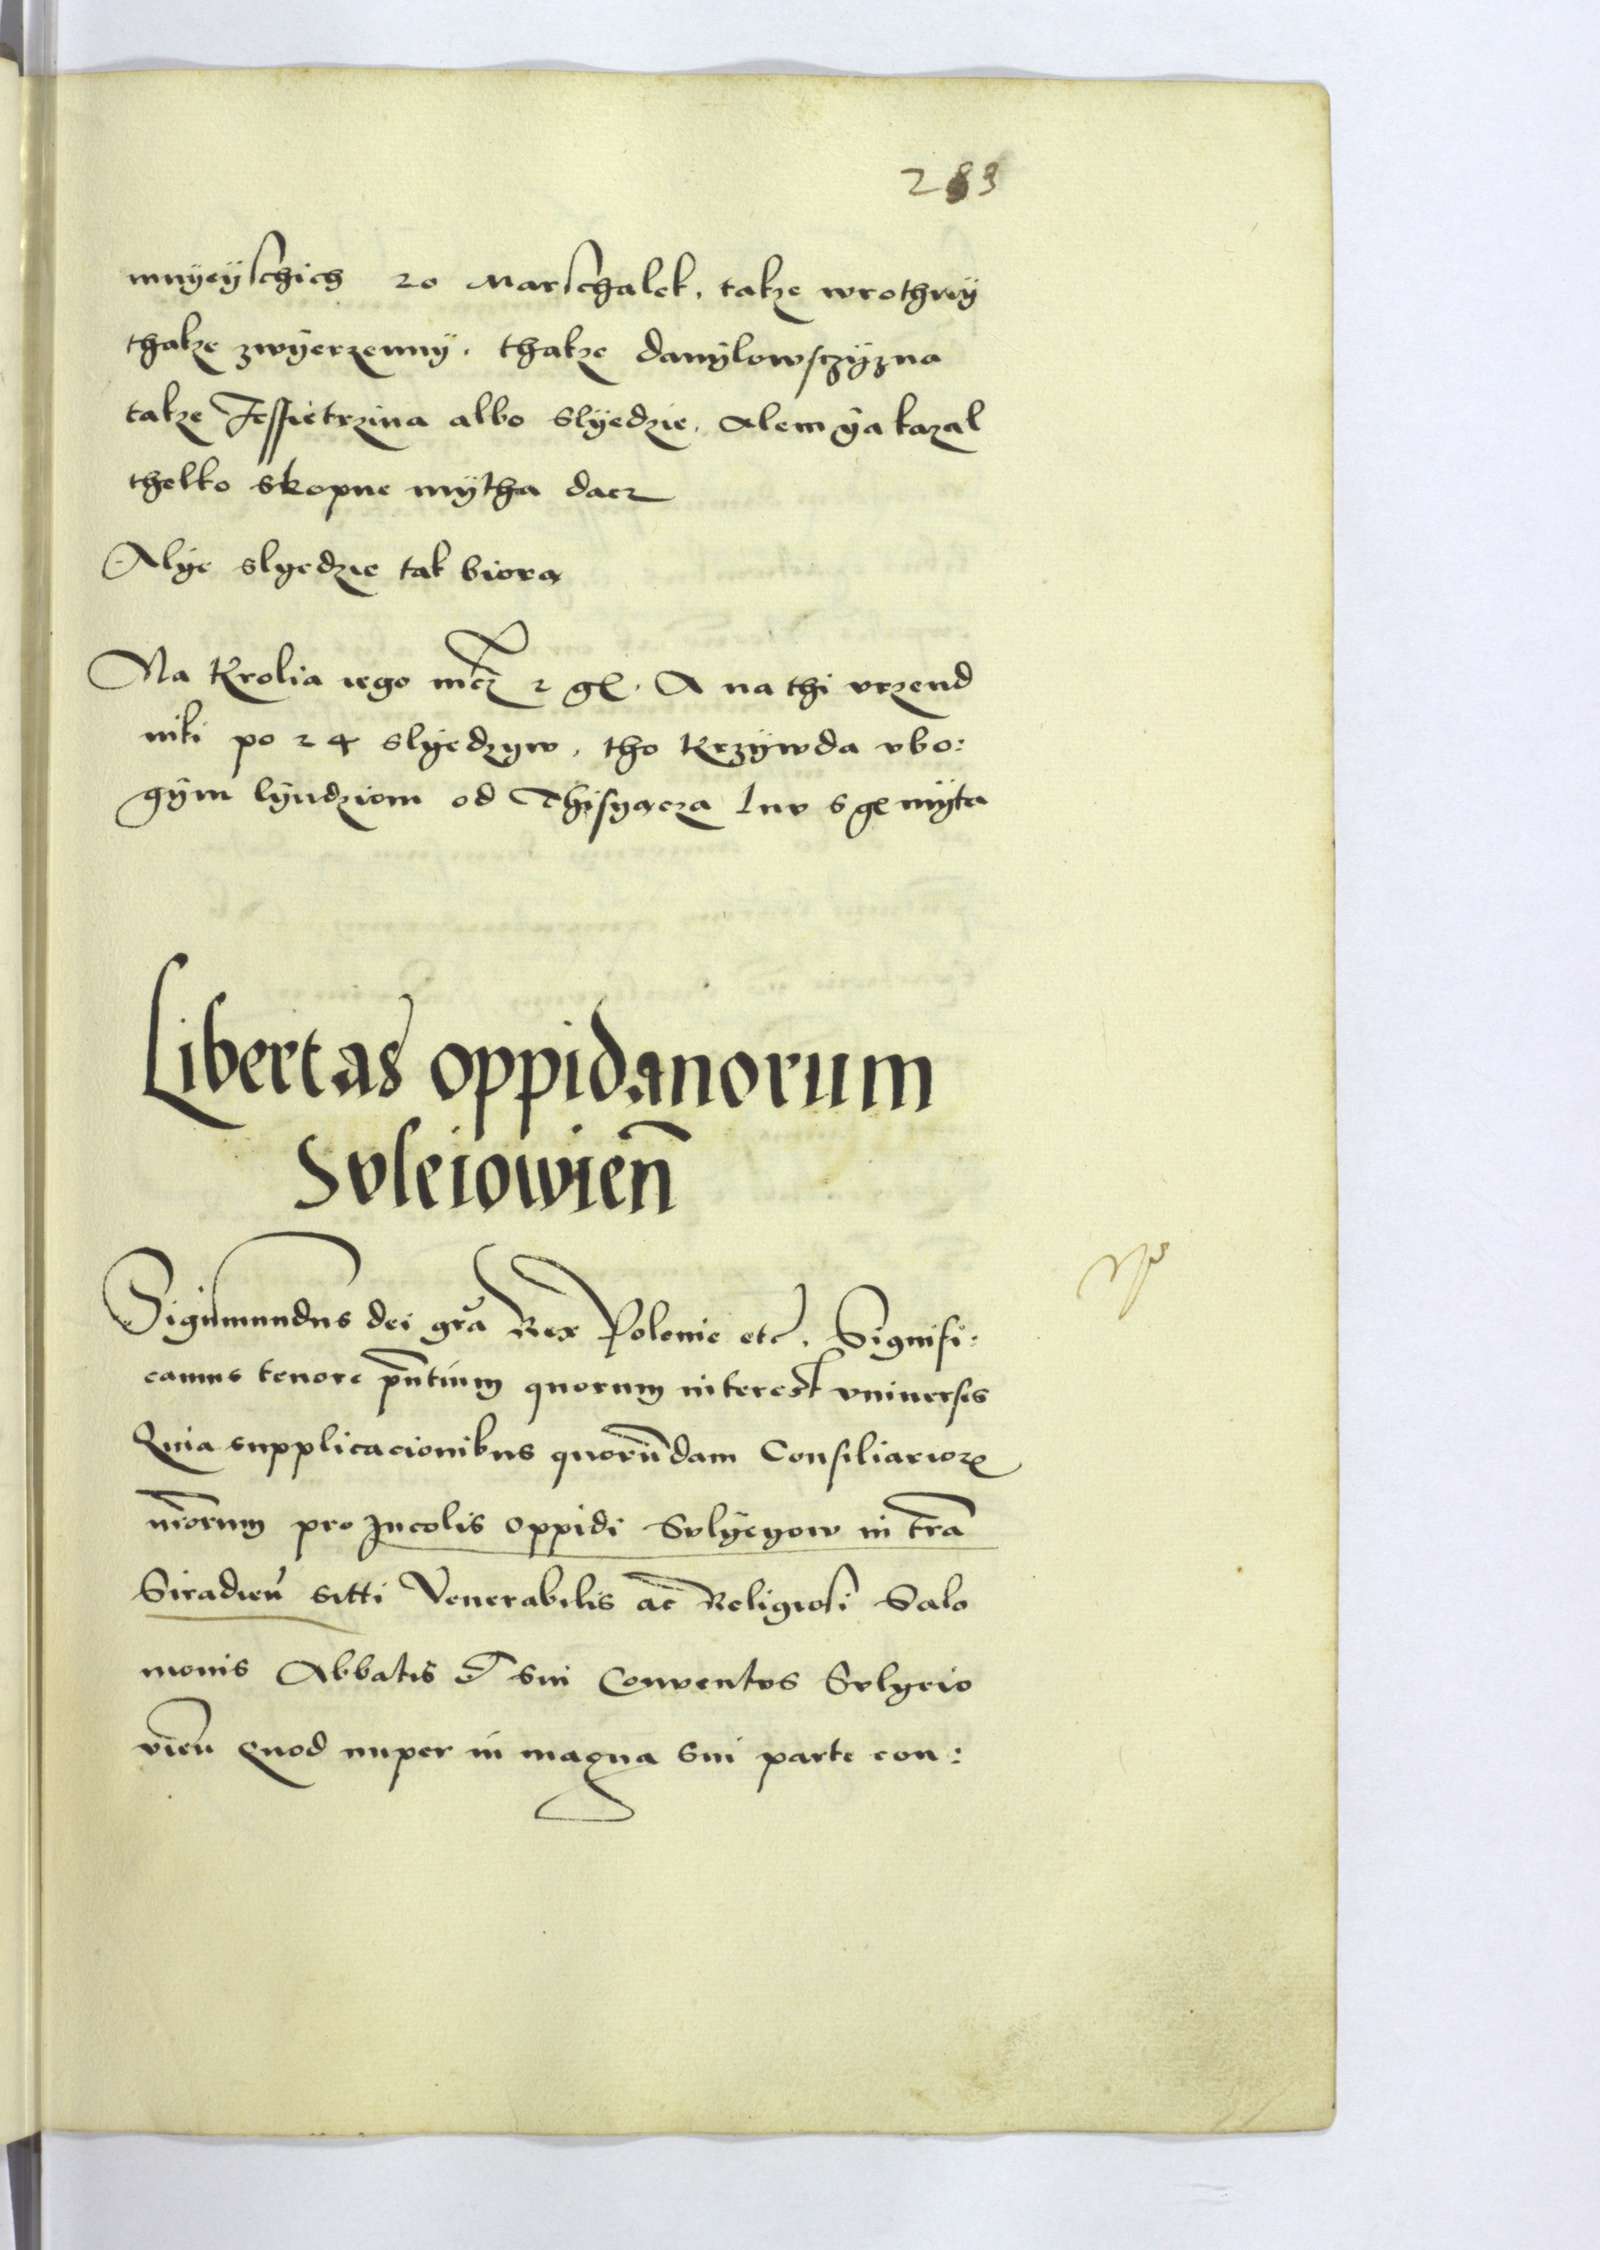 289
mnyeyschich 20 Marschalek, takze wrothny
thakze zwyerzenny. thakze danylowsczyzna
takze Jessietrzina albo slyedzie. Alem ya kazal
thelko skopne mytha dacz
Alye slyedzie tak biora
Na Krolia iego mcz 2 gl. A na thi vrzend
niki po 24 slyedzyw, tho krzywda vbo:
gym lyudziom od Thisyacza 6 gl myta
Libertas oppidanorum
Svleiowien̄
Sigismundus dei gr̄a Rex Polonie etc. Signifi:
camus tenore pn̄tium quorum interest vniuersis
Quia supplicacionibus quorūdam Consiliarioꝝ
nr̄orum pro Incolis oppidi Svlyeyow in tr̄a
Siradien̄ sitti Venerabilis ac Religiosi Salo
monis Abbatis et sui Conventvs Svlyeio
vien̄ Quod nuper in magna sui parte con: